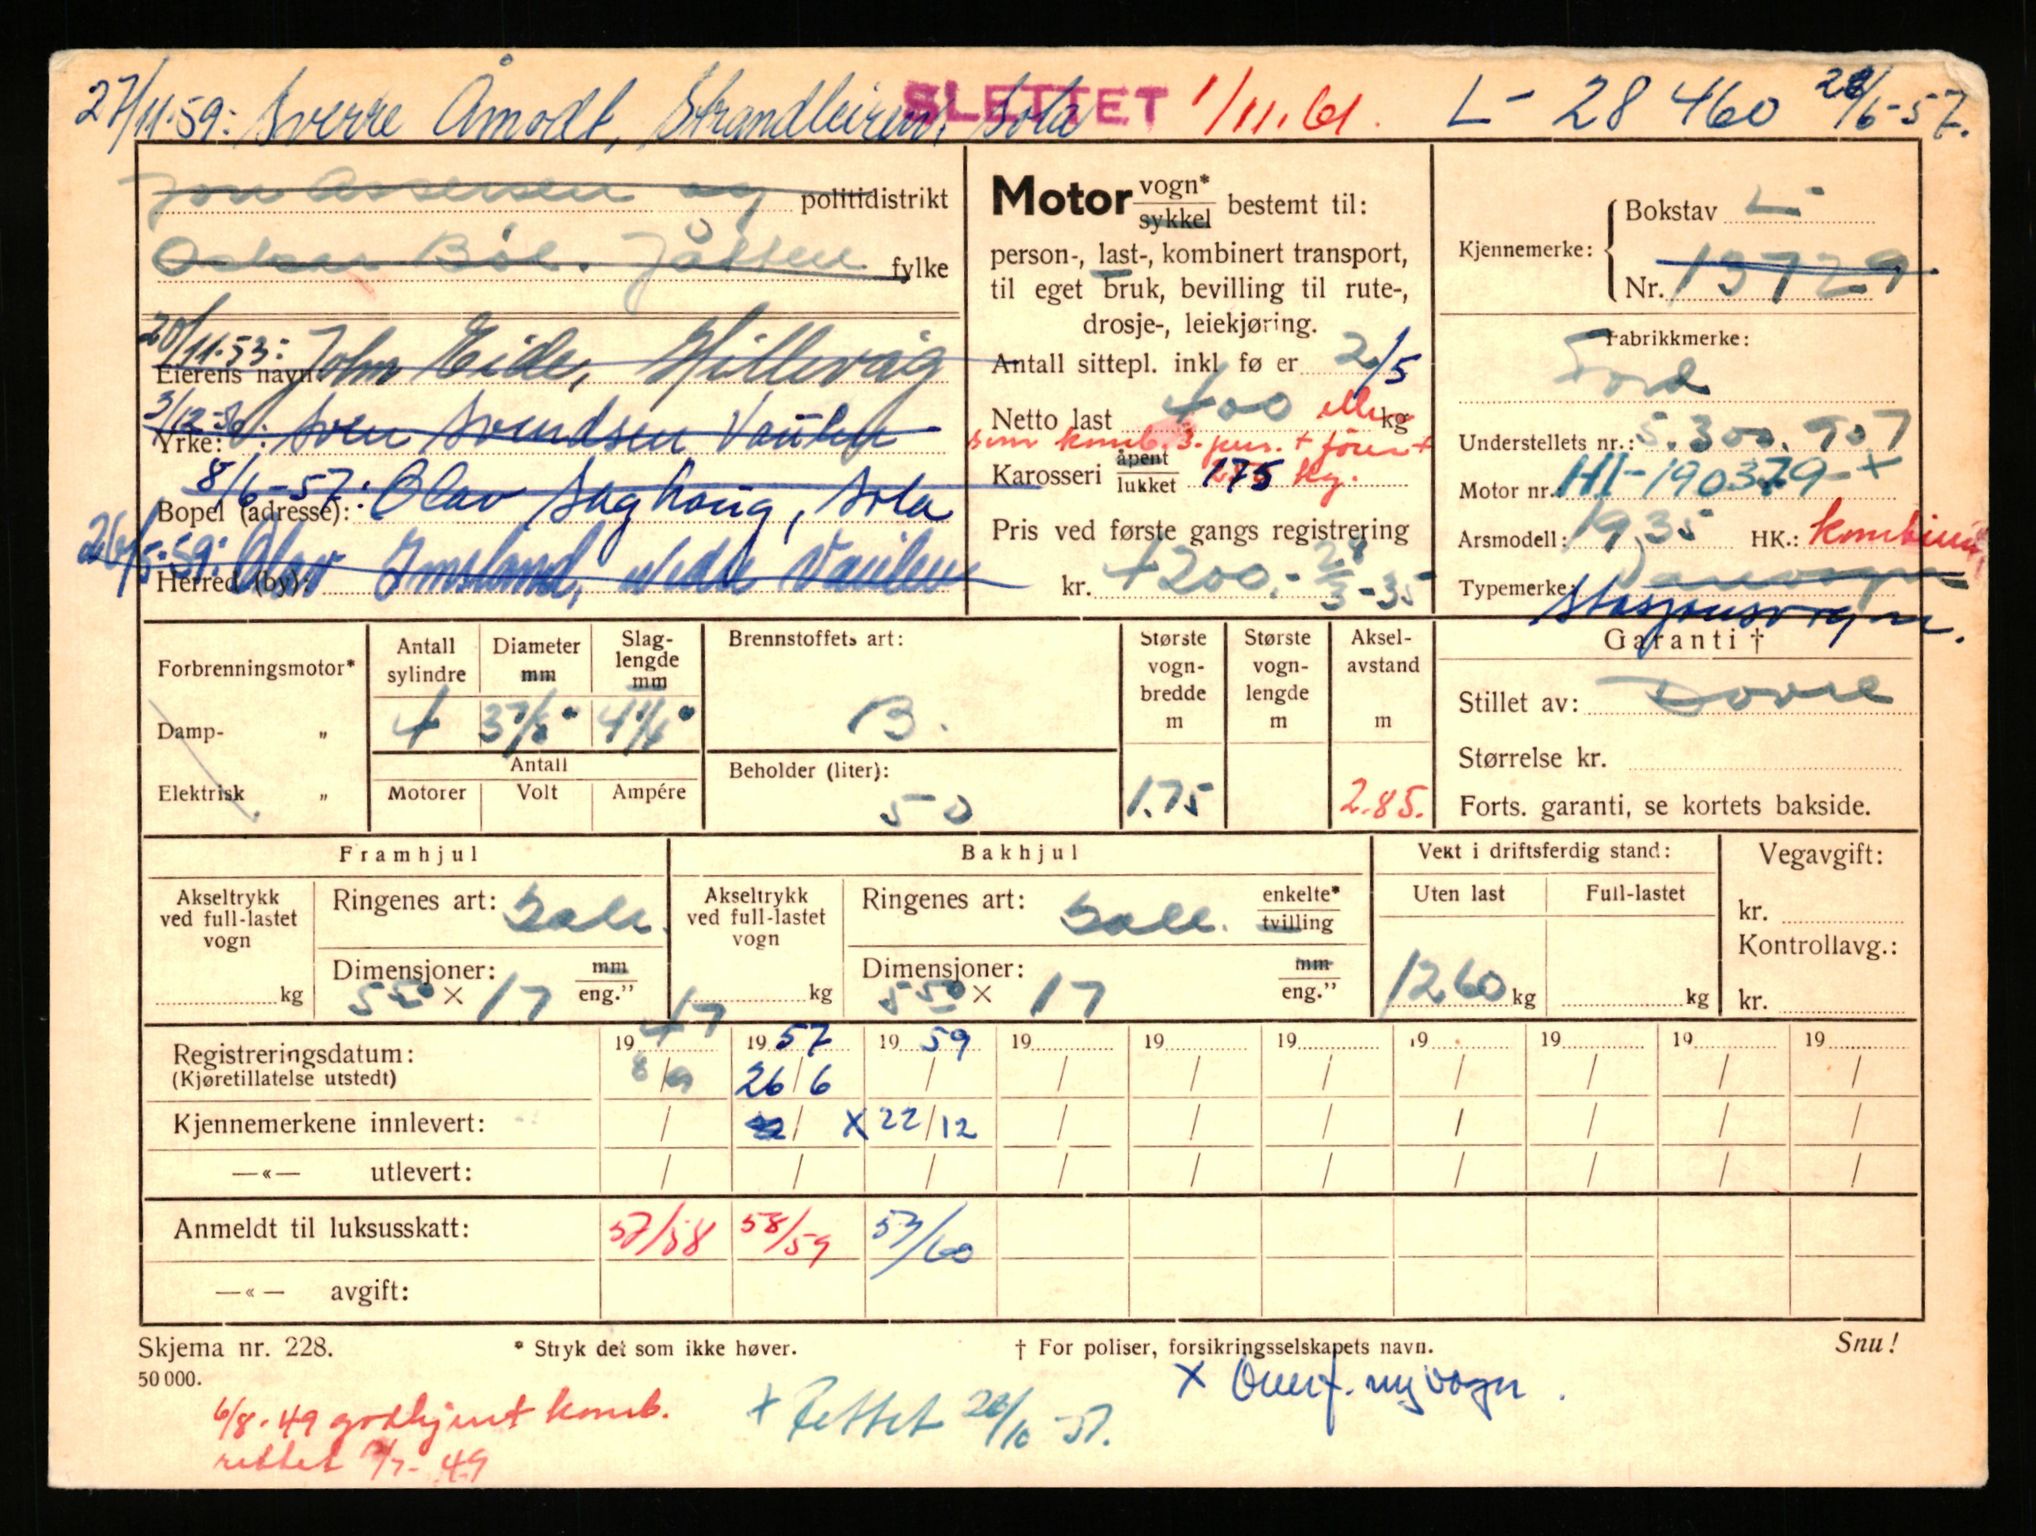 27/11-59: Sverre Åmodt, Strandleiren, Sola SLETTET 1/11.61. L- 28 460 28/6-57.
Jon Assersen og politidistrikt
Oskar Bøe. Jåtten fylke
20/11-53: John Eide, Hillevåg
Eierens navn:
3/12-56: Sven Svendsen Vaulen
Yrke:
8/6-57: Olav Saghaug, Sola
Bopel (adresse):
26/5-59: Olav Imsland, Nedre Vaulen
Herred (by):
Motor vogn* sykkel bestemt til:
person-, last-, kombinert transport,
til eget bruk, bevilling til rute-,
drosje-, leiekjøring.
Antall sittepl. inkl fø er 2/5
Netto last 400 kg eller
som komb. 3. pers. + fører +
Karosseri åpent lukket 175 kg.
Pris ved første gangs registrering
kr. 4200.- 28/3-35
Kjennemerke: Bokstav L-
Nr. 13729
Fabrikkmerke:
Ford
Understellets nr.: 5.300.907
Motor nr. H1-190379-+
Arsmodell: 1935 HK.: kombinert
Typemerke: Varevogn
Stasjonsvogn.
Forbrenningsmotor*
Damp- „
Elektrisk „
Antall sylindre Diameter mm Slaglengde mm
4 37/8" 41/4"
Antall
Motorer Volt Ampére
Brennstoffets art:
B.
Beholder (liter):
50
Største vogn-bredde m Største vogn-lengde m Aksel-avstand m
1.75 2.85.
Garanti †
Stillet av: Dovre
Størrelse kr.
Forts. garanti, se kortets bakside.
Framhjul Bakhjul Vekt i driftsferdig stand: Vegavgift:
Akseltrykk ved full-lastet vogn kg
Ringenes art: Ball.
Dimensjoner: mm eng."
550 x 17
Akseltrykk ved full-lastet vogn kg
Ringenes art: Ball. enkelte* tvilling
Dimensjoner: mm eng."
550 x 17
Uten last Full-lastet
1260 kg kg
kr.
Kontrollavg.:
kr.
19 47 19 57 19 59 19 19 19 19 19 19 19
Registreringsdatum:
(Kjøretillatelse utstedt) 8/9 26/6 / / / / / / / /
Kjennemerkene innlevert: / / X 22/12 / / / / / / /
—«— utlevert: / / / / / / / / / /
Anmeldt til luksusskatt: 57/58 58/59 59/60
—«— avgift:
Skjema nr. 228. * Stryk det som ikke høver. † For poliser, forsikringsselskapets navn. Snu!
50 000.
X Overf. ny vogn.
6/8-49 godkjent komb.
+ Rettet 22/10 57.
rettet 49